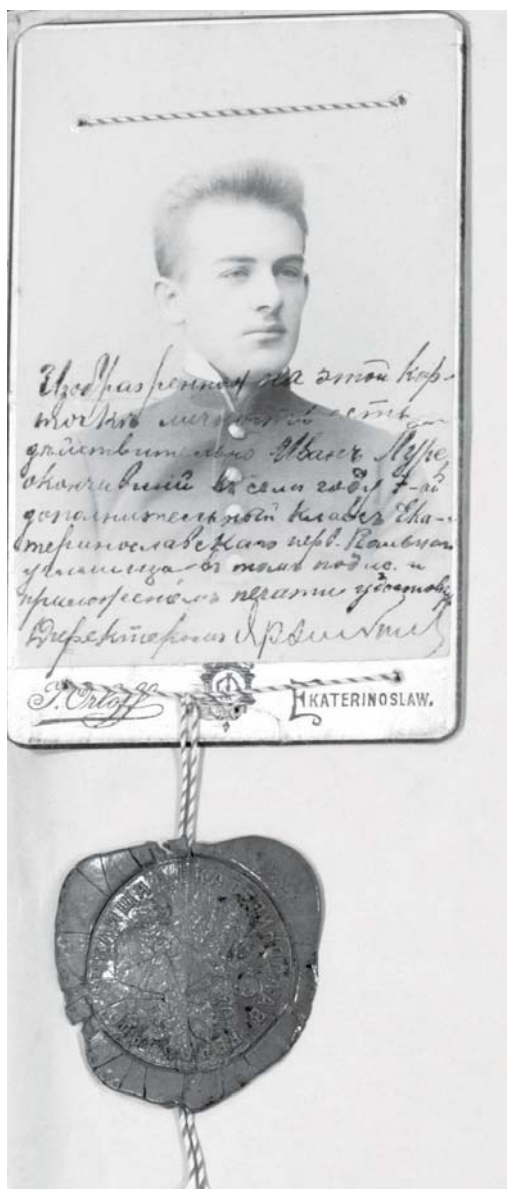 Изображенная на этой кар-
точкѣ личность есть
дѣйствительно Иванъ Лурс
окончившій въ семъ году 7-ой
дополнительный классъ Ека-
теринославскаго перв. Реальнаго
училища въ томъ подпис. и
приложеніемъ печати удостовѣр
Директоръ
J. Orloff EKATERINOSLAW.